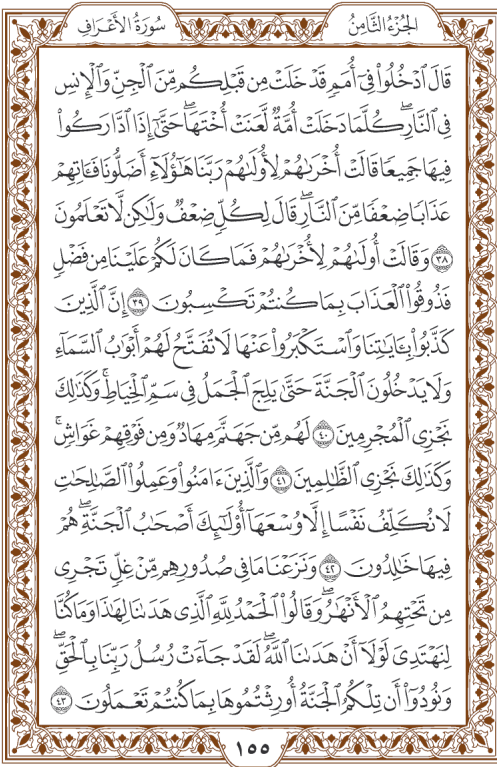 سُورَةُ الأَعْرَافِ
الجُزْءُ الثَّامِنُ
قَالَ ٱدْخُلُوا۟ فِىٓ أُمَمٍ قَدْ خَلَتْ مِن قَبْلِكُم مِّنَ ٱلْجِنِّ وَٱلْإِنسِ
فِى ٱلنَّارِ ۖ كُلَّمَا دَخَلَتْ أُمَّةٌ لَّعَنَتْ أُخْتَهَا ۖ حَتَّىٰٓ إِذَا ٱدَّارَكُوا۟
فِيهَا جَمِيعًا قَالَتْ أُخْرَىٰهُمْ لِأُولَىٰهُمْ رَبَّنَا هَٰٓؤُلَآءِ أَضَلُّونَا فَـَٔاتِهِمْ
عَذَابًا ضِعْفًا مِّنَ ٱلنَّارِ ۖ قَالَ لِكُلٍّ ضِعْفٌ وَلَٰكِن لَّا تَعْلَمُونَ
٣٨ وَقَالَتْ أُولَىٰهُمْ لِأُخْرَىٰهُمْ فَمَا كَانَ لَكُمْ عَلَيْنَا مِن فَضْلٍ
فَذُوقُوا۟ ٱلْعَذَابَ بِمَا كُنتُمْ تَكْسِبُونَ ٣٩ إِنَّ ٱلَّذِينَ
كَذَّبُوا۟ بِـَٔايَٰتِنَا وَٱسْتَكْبَرُوا۟ عَنْهَا لَا تُفَتَّحُ لَهُمْ أَبْوَٰبُ ٱلسَّمَآءِ
وَلَا يَدْخُلُونَ ٱلْجَنَّةَ حَتَّىٰ يَلِجَ ٱلْجَمَلُ فِى سَمِّ ٱلْخِيَاطِ ۚ وَكَذَٰلِكَ
نَجْزِى ٱلْمُجْرِمِينَ ٤٠ لَهُم مِّن جَهَنَّمَ مِهَادٌ وَمِن فَوْقِهِمْ غَوَاشٍ ۚ
وَكَذَٰلِكَ نَجْزِى ٱلظَّٰلِمِينَ ٤١ وَٱلَّذِينَ ءَامَنُوا۟ وَعَمِلُوا۟ ٱلصَّٰلِحَٰتِ
لَا نُكَلِّفُ نَفْسًا إِلَّا وُسْعَهَآ أُو۟لَٰٓئِكَ أَصْحَٰبُ ٱلْجَنَّةِ ۖ هُمْ
فِيهَا خَٰلِدُونَ ٤٢ وَنَزَعْنَا مَا فِى صُدُورِهِم مِّنْ غِلٍّ تَجْرِى
مِن تَحْتِهِمُ ٱلْأَنْهَٰرُ ۖ وَقَالُوا۟ ٱلْحَمْدُ لِلَّهِ ٱلَّذِى هَدَىٰنَا لِهَٰذَا وَمَا كُنَّا
لِنَهْتَدِىَ لَوْلَآ أَنْ هَدَىٰنَا ٱللَّهُ ۖ لَقَدْ جَآءَتْ رُسُلُ رَبِّنَا بِٱلْحَقِّ ۖ
وَنُودُوٓا۟ أَن تِلْكُمُ ٱلْجَنَّةُ أُورِثْتُمُوهَا بِمَا كُنتُمْ تَعْمَلُونَ ٤٣
١٥٥